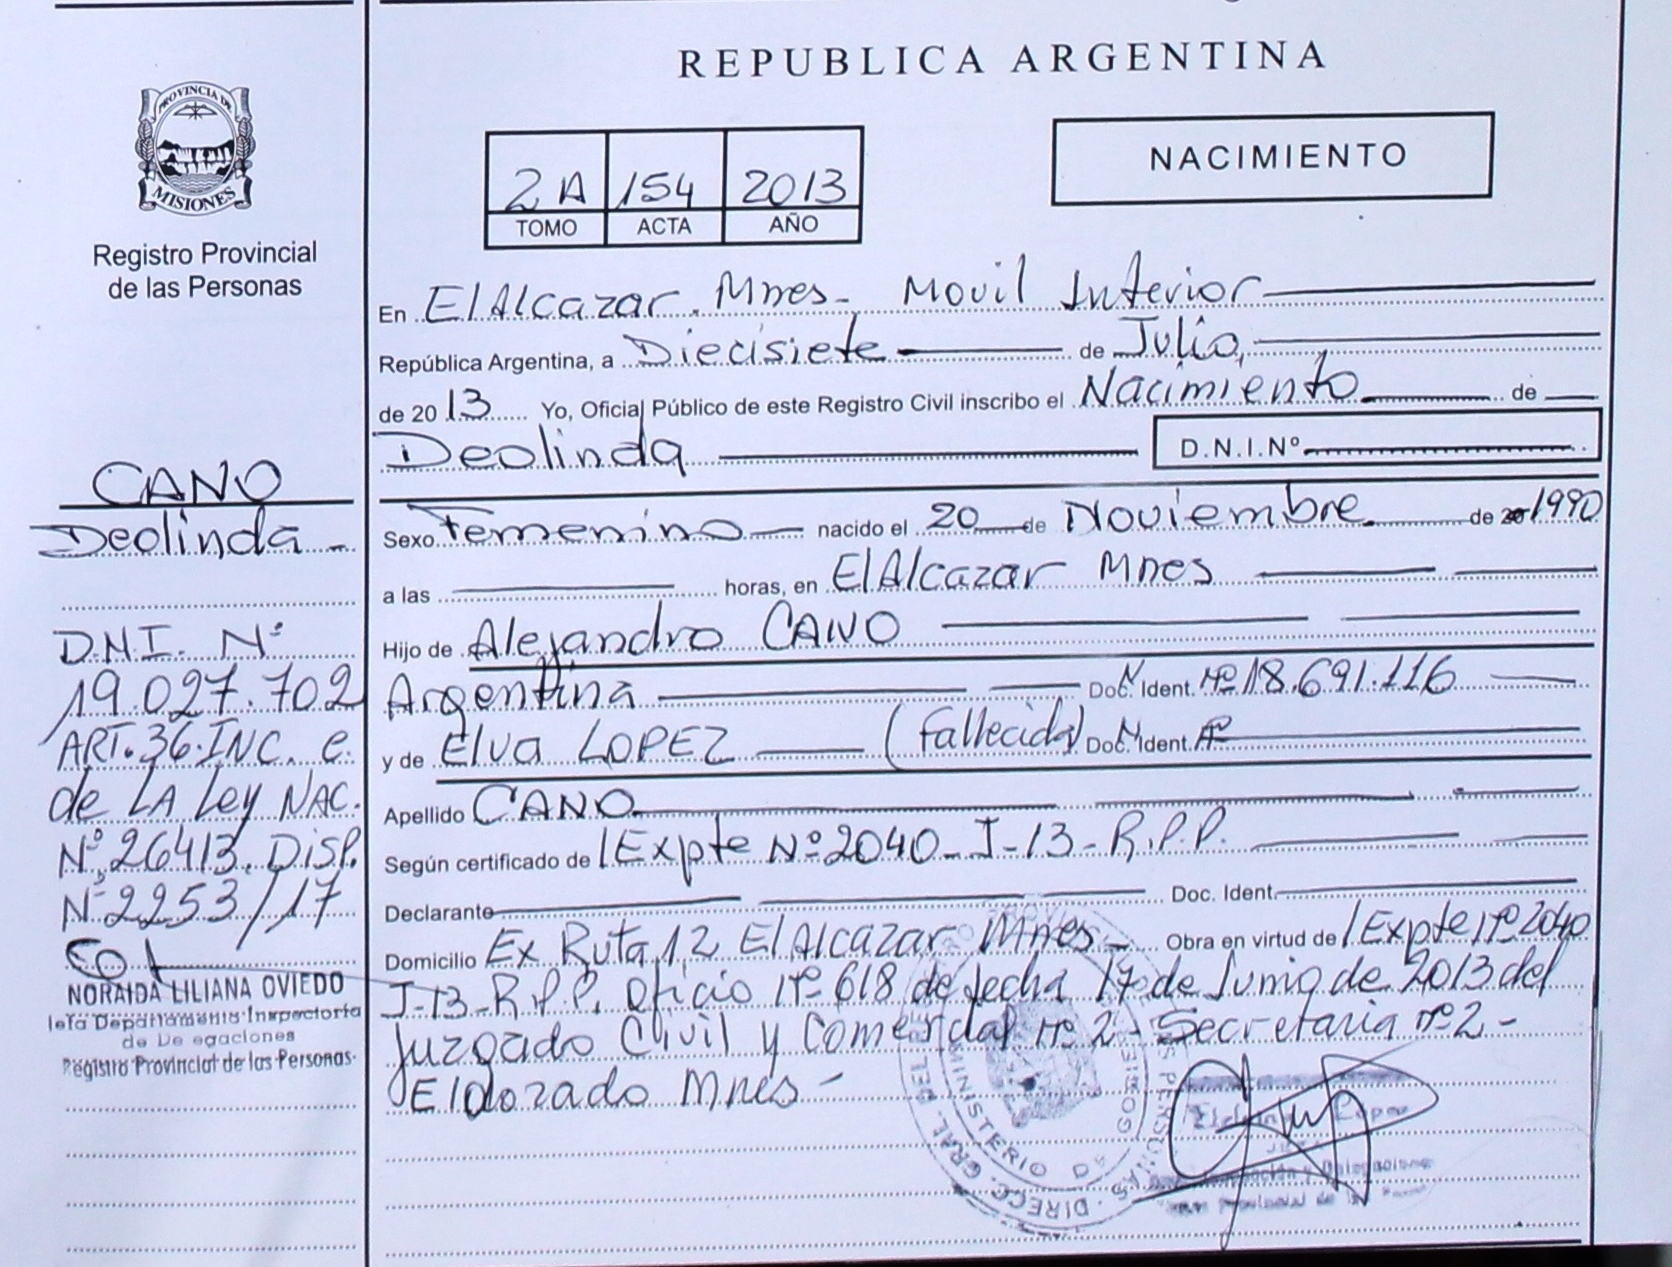 REPUBLICA ARGENTINA
PROVINCIA DE
MISIONES
Registro Provincial
de las Personas
2 A 154 2013
TOMO ACTA AÑO
NACIMIENTO
En El Alcazar. Mnes- Movil Interior
República Argentina, a Diecisiete de Julio,
de 2013 Yo, Oficial Público de este Registro Civil inscribo el Nacimiento de
Deolinda D.N.I.Nº
Sexo Femenino nacido el 20 de Noviembre de 1990
a las horas, en El Alcazar Mnes
Hijo de Alejandro CANO
Argentina Doc. Ident. Nº 18.691.116
y de Elva LOPEZ (Fallecida) Doc. Ident. Nº
Apellido CANO
Según certificado de Expte Nº 2040-J-13-R.P.P.
Declarante Doc. Ident.
Domicilio Ex Ruta 12 El Alcazar Mnes- Obra en virtud de Expte Nº 2040
J-13-R.P.P. Oficio Nº 618 de fecha 17 de Junio de 2013 del
Juzgado Civil y Comercial nº 2- Secretaria nº 2-
Eldorado Mnes-
CANO
Deolinda-
D.N.I. Nº
19.027.702
ART. 36. INC. e.
de LA Ley NAC.
Nº 26413. Disp.
Nº 2253/17
NORAIDA LILIANA OVIEDO
Jefa Departamento Inspectoria
de Delegaciones
Registro Provincial de las Personas
MINISTERIO DE GOBIERNO
DIRECC. GRAL. DEL